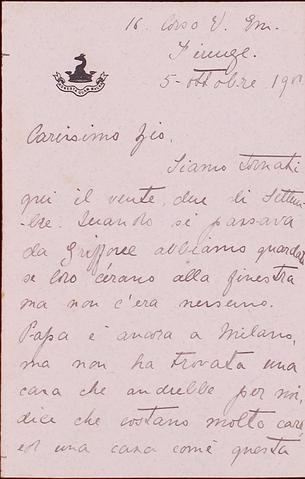 16. Corso V. Em.
Firenze.
5 – ottobre. 190
Carissimo Zio,
Siamo tornati
qui il vente due di Settem-
bre. Quando si passava
da abbiamo guardato
se loro c'erano alla finestra
ma non c'era nessuno.
Papa è ancora a Milano,
ma non ha trovata una
casa che andrebbe per noi,
dice che costano molto care
una casa come questa